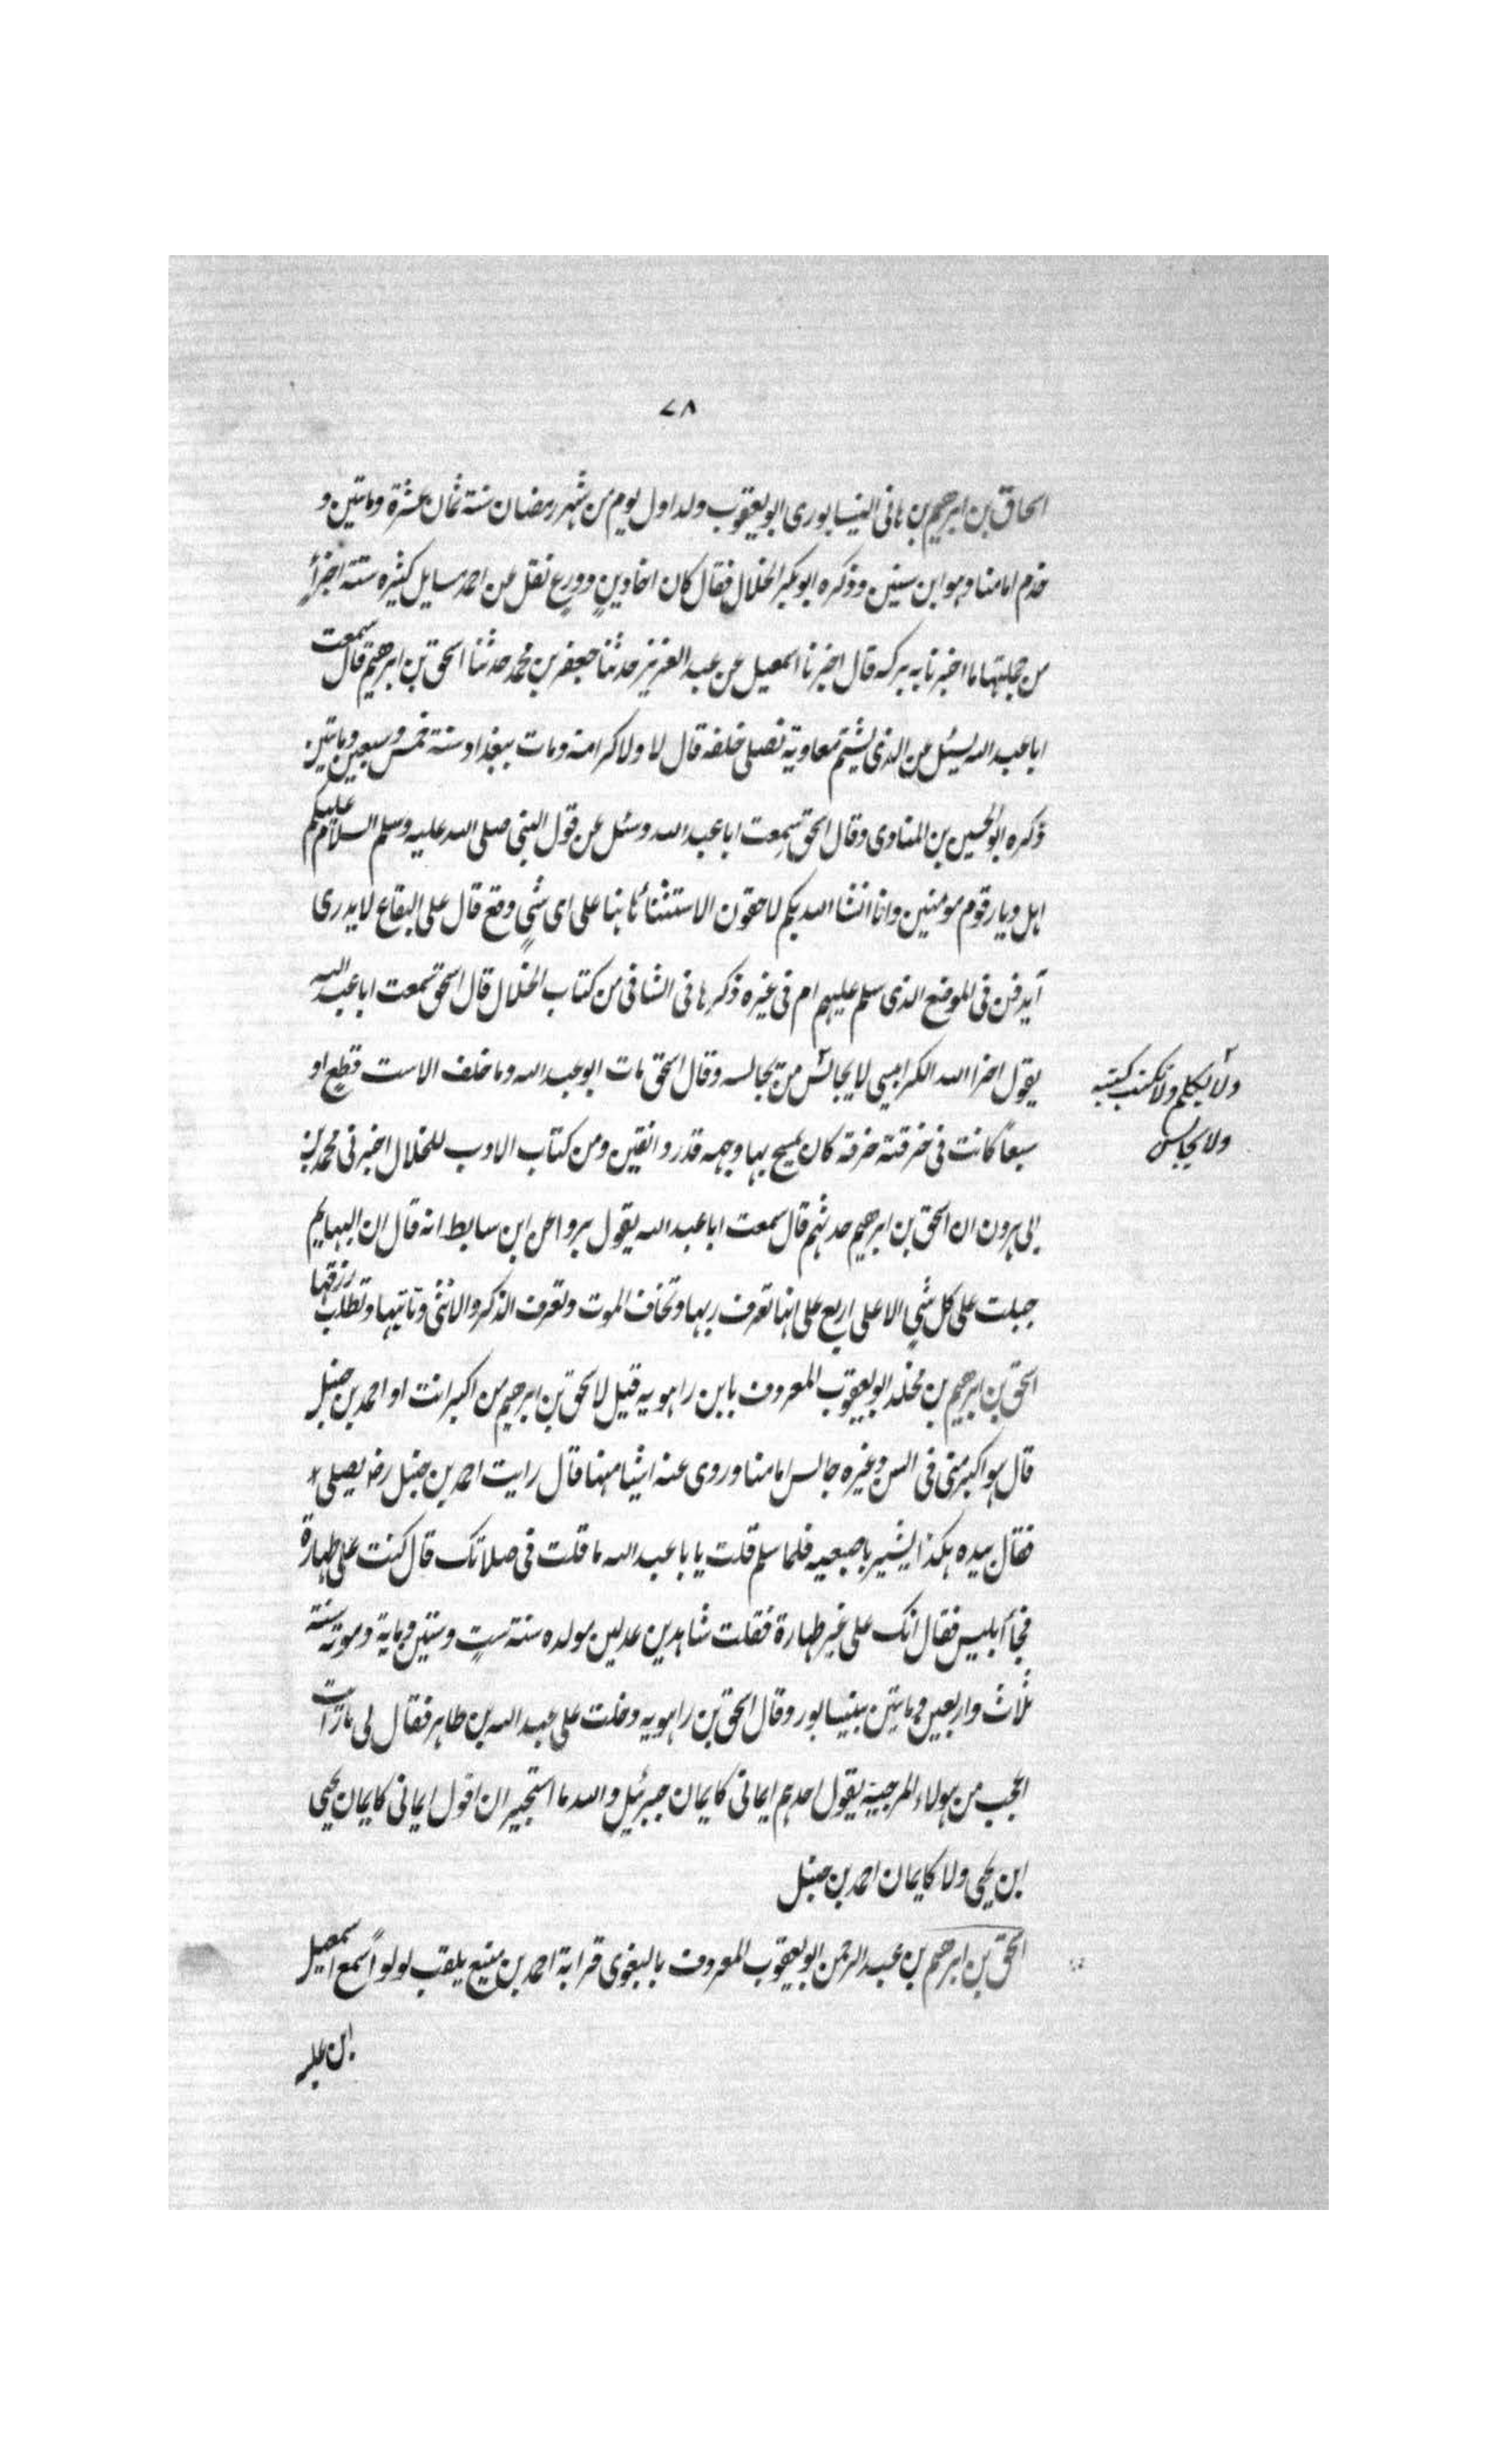 ٧٨
اسحاق بن ابرهيم بن هانى النيسابورى ابو يعقوب ولد اول يوم من شهر رمضان سنة ثمان عشرة وماتين و
خدم امامنا وهو ابن سنين وذكره ابو بكر الخلال فقال كان اخا دين وورع نقل عن احمد مسايل كثيره ستة اجزأ
من جملتها ما اخبرنا به بركه قال اخبرنا اسمعيل عن عبد العزيز حدثنا جعفر بن محمد حدثنا اسحق بن ابرهيم قال سمعت
ابا عبد الله يسئل عن الذى يشتم معاوية نصلى خلفه قال لا ولا كرامة ومات ببغداد سنة خمس وسبعين وماتين
ذكره ابو الحسين بن المناوى وقال اسحق سمعت ابا عبد الله وسئل عن قول النبى صلى الله عليه وسلم السلام عليكم
اهل ديار قوم مومنين وانا انشا الله بكم لاحقون الاستثنأ هاهنا على اى شىٍ وقع قال على البقاع لا يدرى
أيدفن فى الموضع الذى سلم عليهم ام فى غيره ذكرها فى الشافى من كتاب الخلال قال اسحق سمعت ابا عبد الله
يقول اخزا الله الكرابيسى لا يجالس من يجالسه وقال اسحق مات ابو عبد الله وما خلف الا ست قطع او
ولا يكلم ولا تكتب كتبه
ولا يجالس
سبعاً كانت فى خرقته خرقة كان يمسح بها وجهه قدر دانقين ومن كتاب الادب للخلال اخبرنى محمد بن
ابى هرون ان اسحق بن ابرهيم حدثهم قال سمعت ابا عبد الله يقول يروا عن ابن سابط انه قال ان البهايم
جبلت على كل شىٍ الا على اربع على انها تعرف ربها وتخاف الموت وتعرف الذكر والانثى وتاتيها وتطلب رزقها
اسحق بن ابرهيم بن مخلد ابو يعقوب المعروف بابن راهويه قيل لاسحق بن ابرهيم من اكبر انت او احمد بن حنبل
قال هو اكبر منى فى السن وغيره جالس امامنا وروى عنه اشيا منها قال رايت احمد بن حنبل رضه يصلى
فقال بيده هكذا يشير باصبعيه فلما سلم قلت يا با عبد الله ما قلت فى صلاتك قال كنت على طهارة
فجأ ابليس فقال انك على غير طهارة فقلت شاهدين عدلين مولده سنة ست وستين وماية وموته سنة
ثلاث واربعين وماتين بنيسابور وقال اسحق بن راهويه دخلت على عبد الله بن طاهر فقال لى ما رأيت
اعجب من هولاء المرجيّه يقول احدهم ايمانى كايمان جبرئيل والله ما استجير ان اقول ايمانى كايمان يحيى
ابن يحيى ولا كايمان احمد بن حنبل
اسحق بن ابرهيم بن عبد الرحمن ابو يعقوب المعروف بالبغوى قرابة احمد بن منيع يلقب لولوأ سمع اسمعيل
ابن عليه